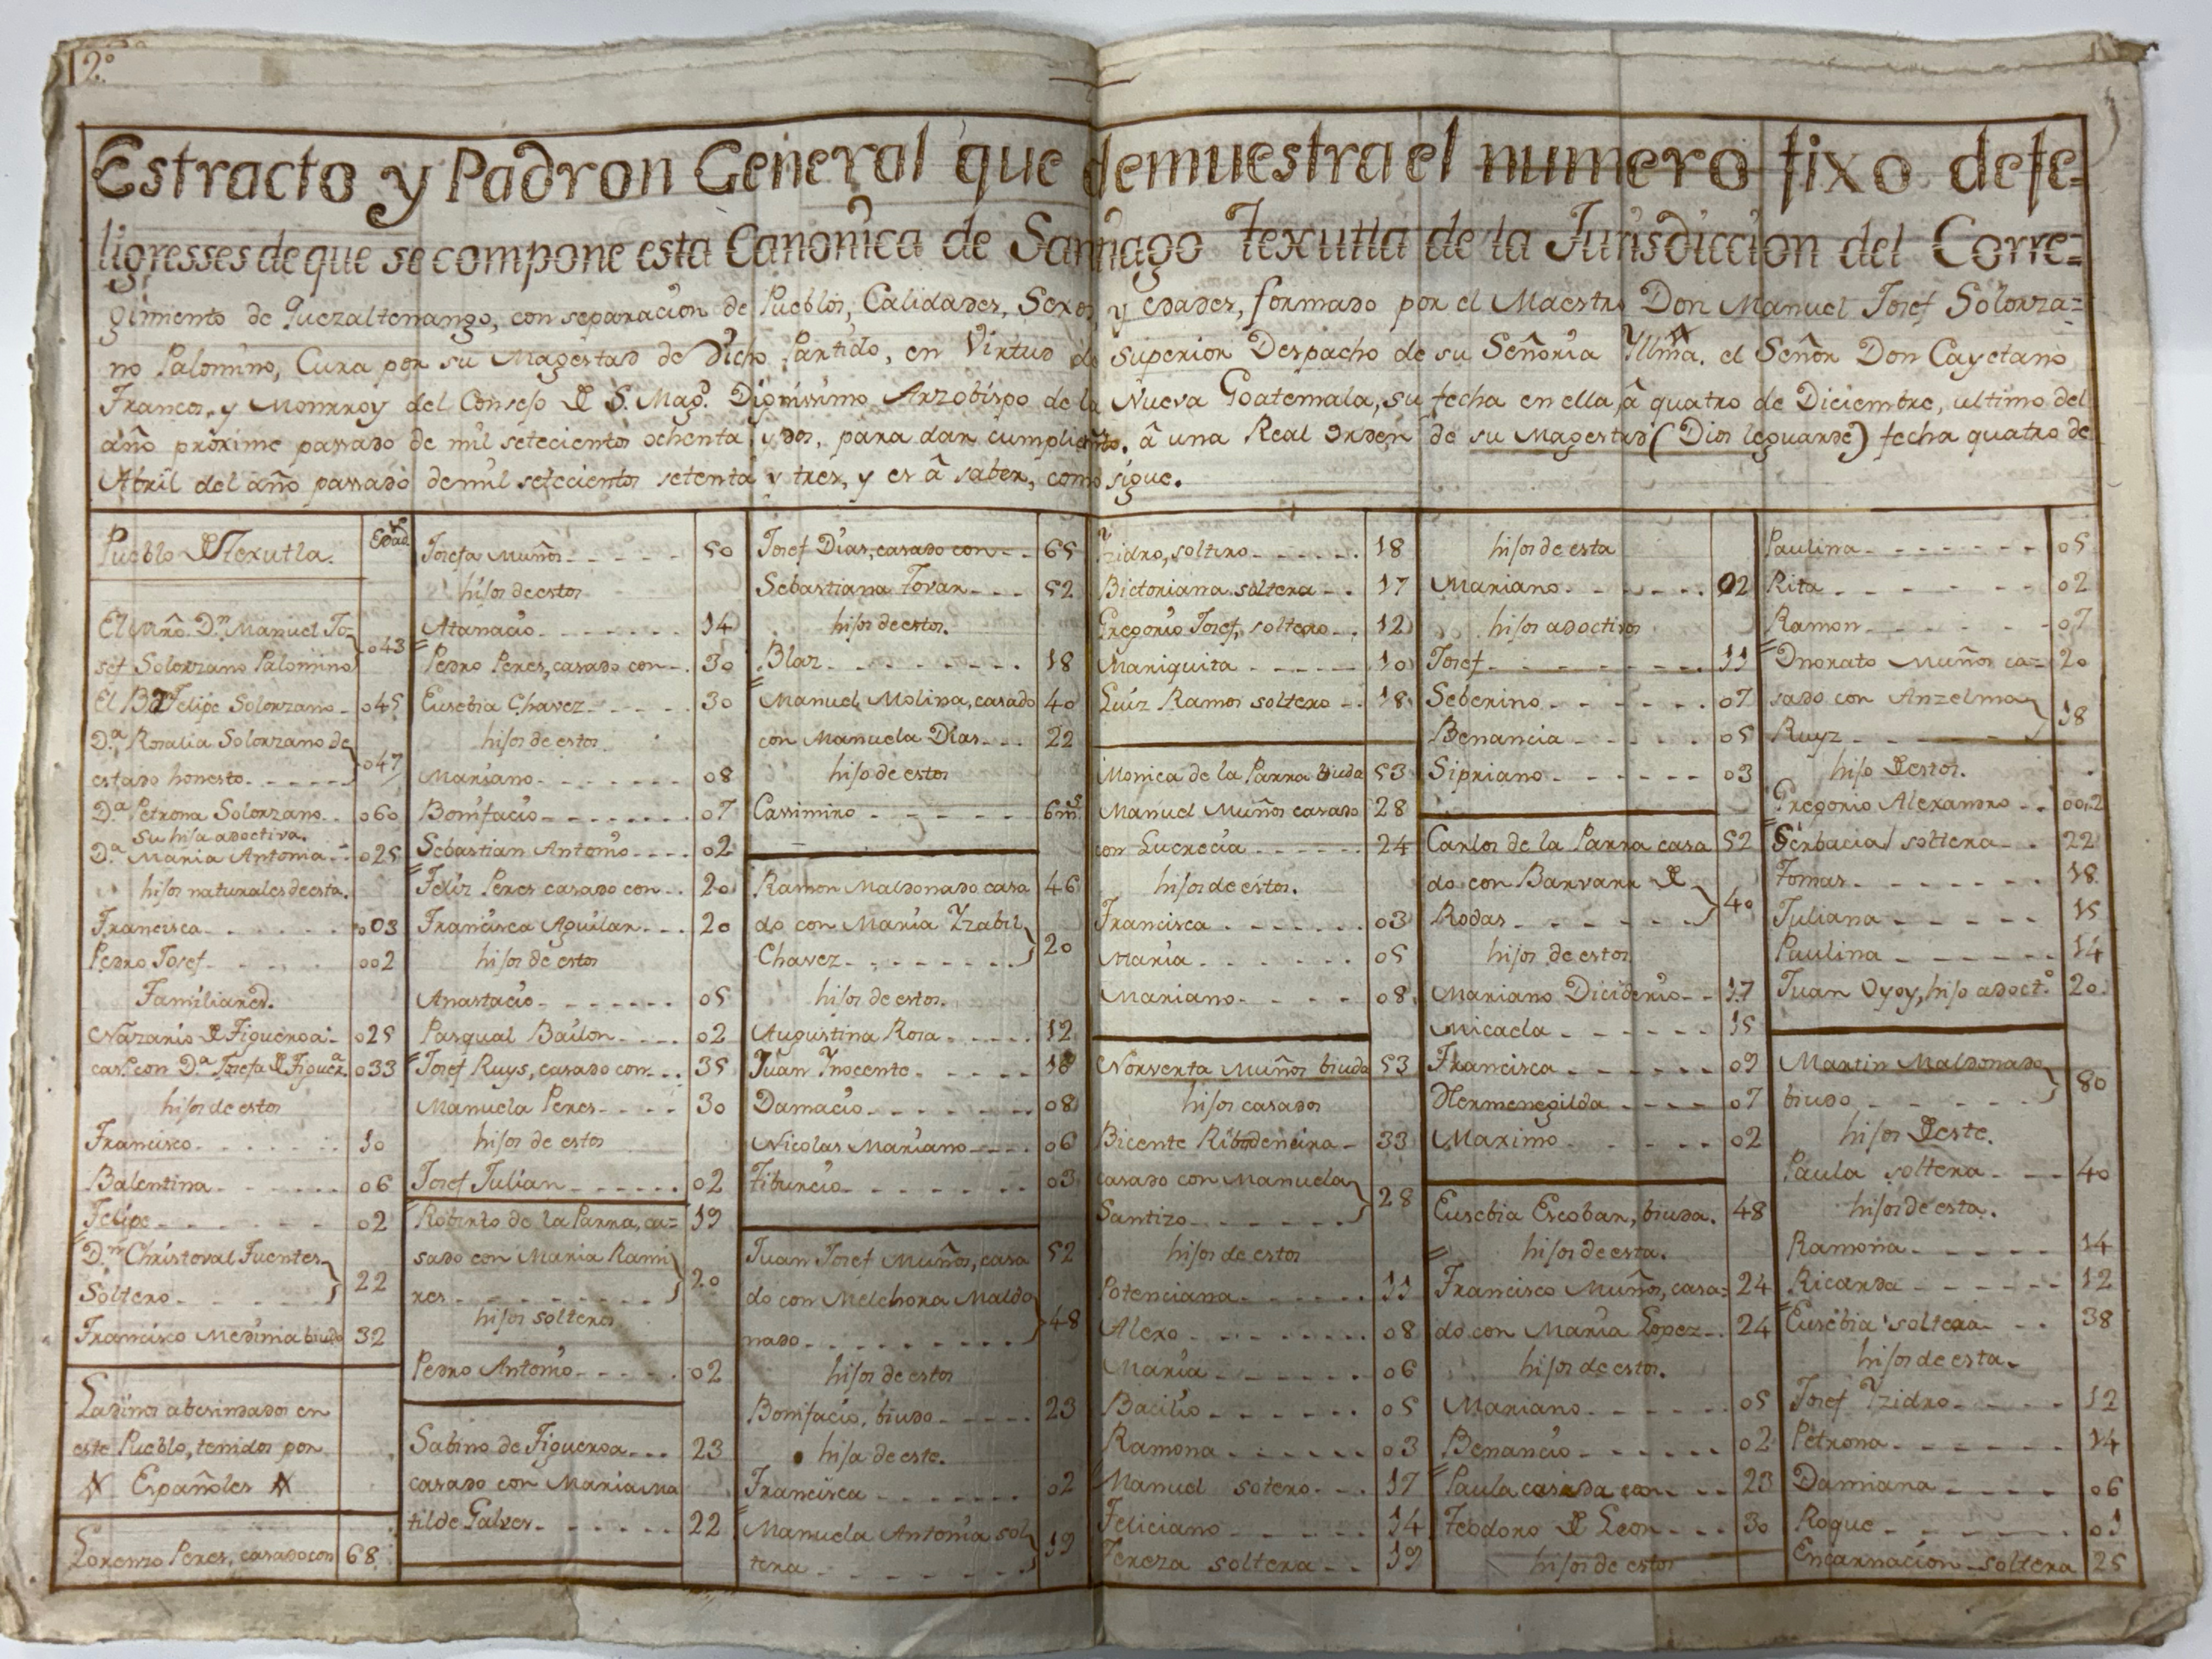 2.º
Estracto y Padron General que demuestra el numero fixo defe=
ligresses de que se compone esta Canonica de Santiago Texutla de la Jurisdiccion del Corre=
gimiento de Quezaltenango, con separacion de Pueblos, Calidades, Sexos, y edades, formado por el Maestro Don Manuel Josef Solorza=
no Palomino, Cura por su Magestad de Dicho Partido, en Virtud de superior Despacho de su Señoria Yllma. el Señor Don Cayetano
Francos, y Monrroy del Consejo de S. Mag.d Dignissimo Arzobispo de la Nueva Goatemala, su fecha en ella, â quatro de Diciembre, ultimo del
año proximo passado de mil setecientos ochenta, y dos, para dar cumplim.to â una Real orden de su Magestad (Dios le guarde) fecha quatro de
Abril del año passado de mil setecientos setenta y tres, y es â saber, como sigue.
Pueblo de Texutla. Edad.s
El Mrô. D.n Manuel Jo=
sef Solorzano Palomino 043
El Br. Felipe Solorzano 045
D.a Rosalia Solorzano de
estado honesto 047
D.a Petrona Solorzano 060
Su hija adoctiva.
D.a Maria Antonia 025
hijos naturales de esta.
Francisca 003
Pedro Josef 002
Familiares.
Nazario de Figueroa 025
cas.do con D.a Josefa de Figuer.a 033
hijos de estos
Francisco 10
Balentina 06
Felipe 02
D.n Christoval Fuentes
Soltero 22
Francisco Medina biudo 32
Ladinos abesindados en
este Pueblo, tenidos por
Españoles
Lorenzo Peres, casado con 68
Josefa Muños 50
hijos de estos
Atanacio 14
Pedro Peres, casado con 30
Eusebia Chavez 30
hijos de estos
Mariano 08
Bonifacio 07
Sebastian Antonio 02
Feliz Peres casado con 20
Francisca Aguilar 20
hijos de estos
Anastacio 05
Pasqual Bailon 02
Josef Ruys, casado con 35
Manuela Peres 30
hijos de estos
Josef Julian 02
Roberto de la Parra, ca= 19
sado con Maria Rami
res 20
hijos solteros
Pedro Antonio 02
Sabino de Figueroa 23
casado con Maria Ma
tilde Galves 22
Josef Dias, casado con 65
Sebastiana Tovar 52
hijos de estos.
Blas 18
Manuel Molina, casado 40
con Manuela Dias 22
hijo de estos
Cassimiro 6 m.s
Ramon Maldonado casa 46
do con Maria Yzabil
Chavez 20
hijos de estos.
Augustina Rosa 12
Juan Ynocente 10
Damacio 08
Nicolas Mariano 06
Tiburcio 03
Juan Josef Muños, casa 52
do con Melchora Maldo
nado 48
hijos de estos
Bonifacio, biudo 23
hija de este.
Francisca 02
Manuela Antonia sol
tera 19
Yzidro, soltero 18
Bictoriana soltera 17
Gregorio Josef, soltero 12
Mariquita 10
Luiz Ramos soltero 18
Monica de la Parra biuda 53
Manuel Muños casado 28
con Lucrecia 24
hijos de estos.
Francisca 03
Maria 05
Mariano 08
Norverta Muños biuda 53
hijos casados
Bicente Ribadeneira 33
casado con Manuela
Santizo 28
hijos de estos
Potenciana 11
Alexo 08
Maria 06
Bacilio 05
Ramona 03
Manuel sotero 17
Feliciano 14
Tereza soltera 19
hijos de esta
Mariano 02
hijos adoctivos
Josef 11
Seberino 07
Benancia 05
Sipriano 03
Carlos de la Parra casa 52
do con Barvara de
Rodas 40
hijos de estos
Mariano Diciderio 17
Micaela 15
Francisca 09
Hermenegilda 07
Maximo 02
Eusebia Escobar, biuda. 48
hijos de esta.
Francisco Muños, casa= 24
do con Maria Lopez 24
hijos de estos.
Mariano 05
Benancio 02
Paula casada con 23
Teodoro de Leon 30
hijos de estos
Paulina 05
Rita 02
Ramon 07
Onorato Muños ca= 20
sado con Anzelma
Ruyz 18
hijo de estos.
Gregorio Alexandro 002
Serbacia soltera 22
Tomas 18
Juliana 15
Paulina 14
Juan Oyoy, hijo adoct.º 20
Martin Maldonado
biudo 80
hijos de este.
Paula soltera 40
hijos de esta.
Ramona 14
Ricarda 12
Eusebia soltera 38
hijos de esta.
Josef Yzidro 12
Petrona 14
Damiana 06
Roque 01
Encarnacion soltera 25